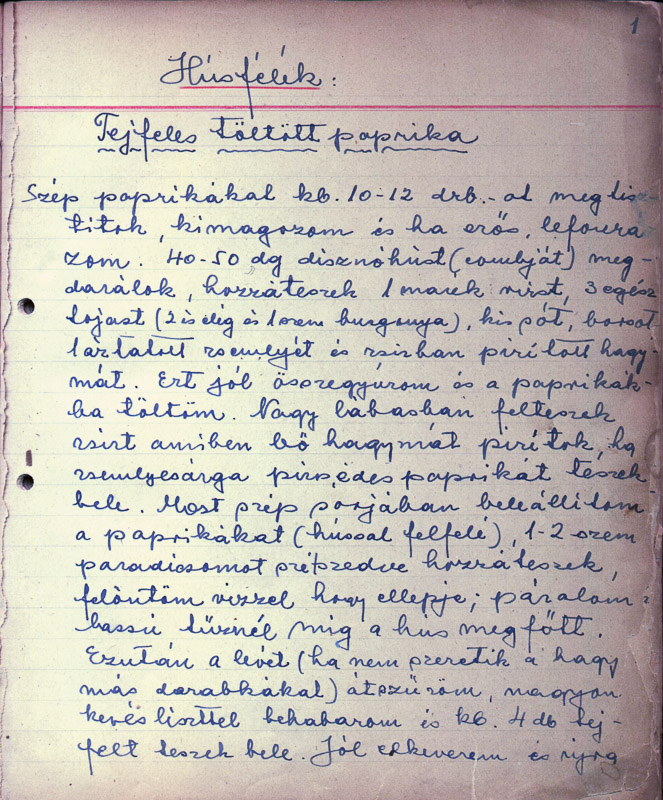 1
Húsfélék:
Tejfeles töltött paprika
Szép paprikákat kb. 10-12 drb.-ot megtisz-
títok, kimagozom és ha erős, leforrá
zom. 40-50 dg disznóhúst (combját) meg-
darálok, hozzáteszek 1 marék rizst, 3 egész
tojást (2 is elég és 1 szem burgonya), kis sót, borsot
1 áztatott zsemlyét és zsirban pirított hagy-
mát. Ezt jól összegyúrom és a paprikák-
ba töltöm. Nagy lábasban felteszek
zsirt amiben bő hagymát pirítok, ha
zsemlyesárga piros, édes paprikát teszek
bele. Most szép sorjában beleállitom
a paprikákat (hússal felfelé), 1-2 szem
paradicsomot szétszedve hozzáteszek,
felöntöm vizzel hogy ellepje; párolom
lassú tűznél mig a hús megfőtt.
Ezután a levét (ha nem szeretik a hagy
más darabkákat) átszűröm, nagyon
kevés liszttel behabarom és kb. 4 db tej-
felt teszek bele. Jól elkeverem és ujra